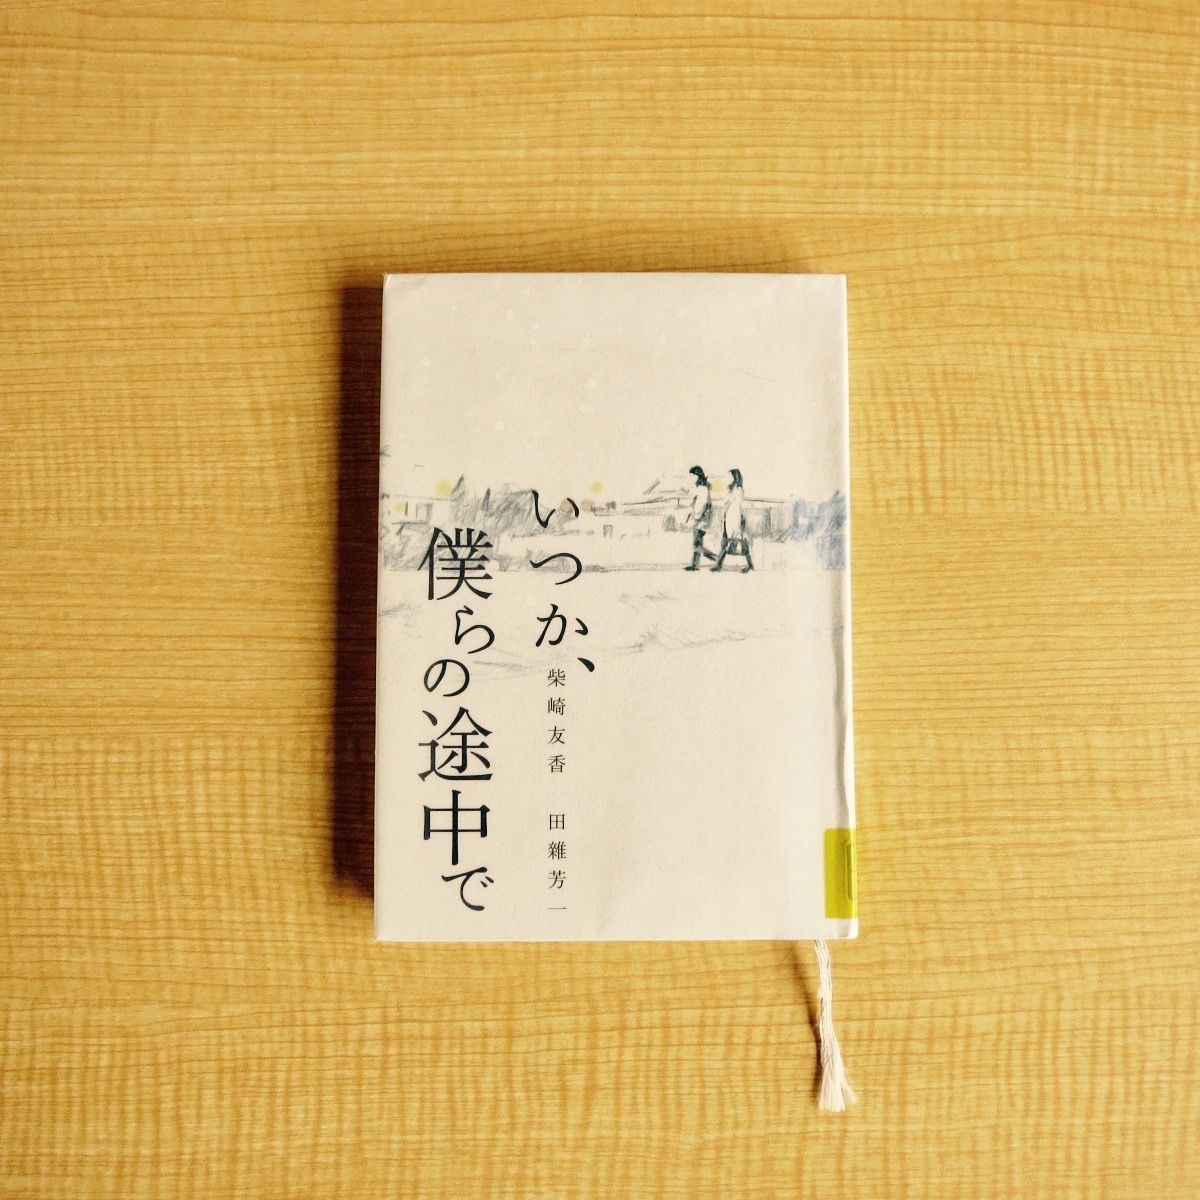 いつか、
僕らの途中で
柴崎友香　田雜芳一